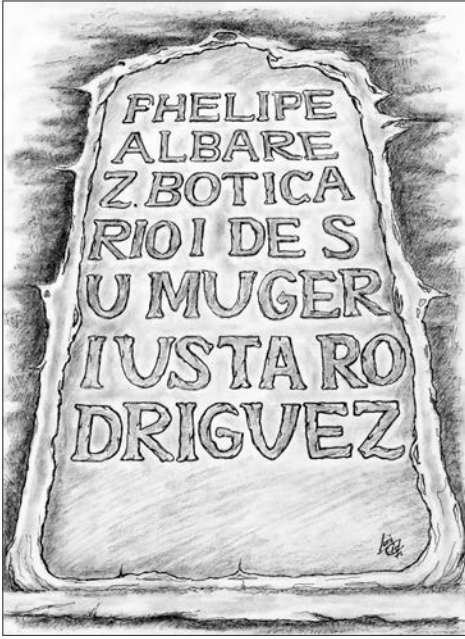 PHELIPE
ALBARE
Z. BOTICA
RIO I DE S
U MUGER
IUSTA RO
DRIGUEZ